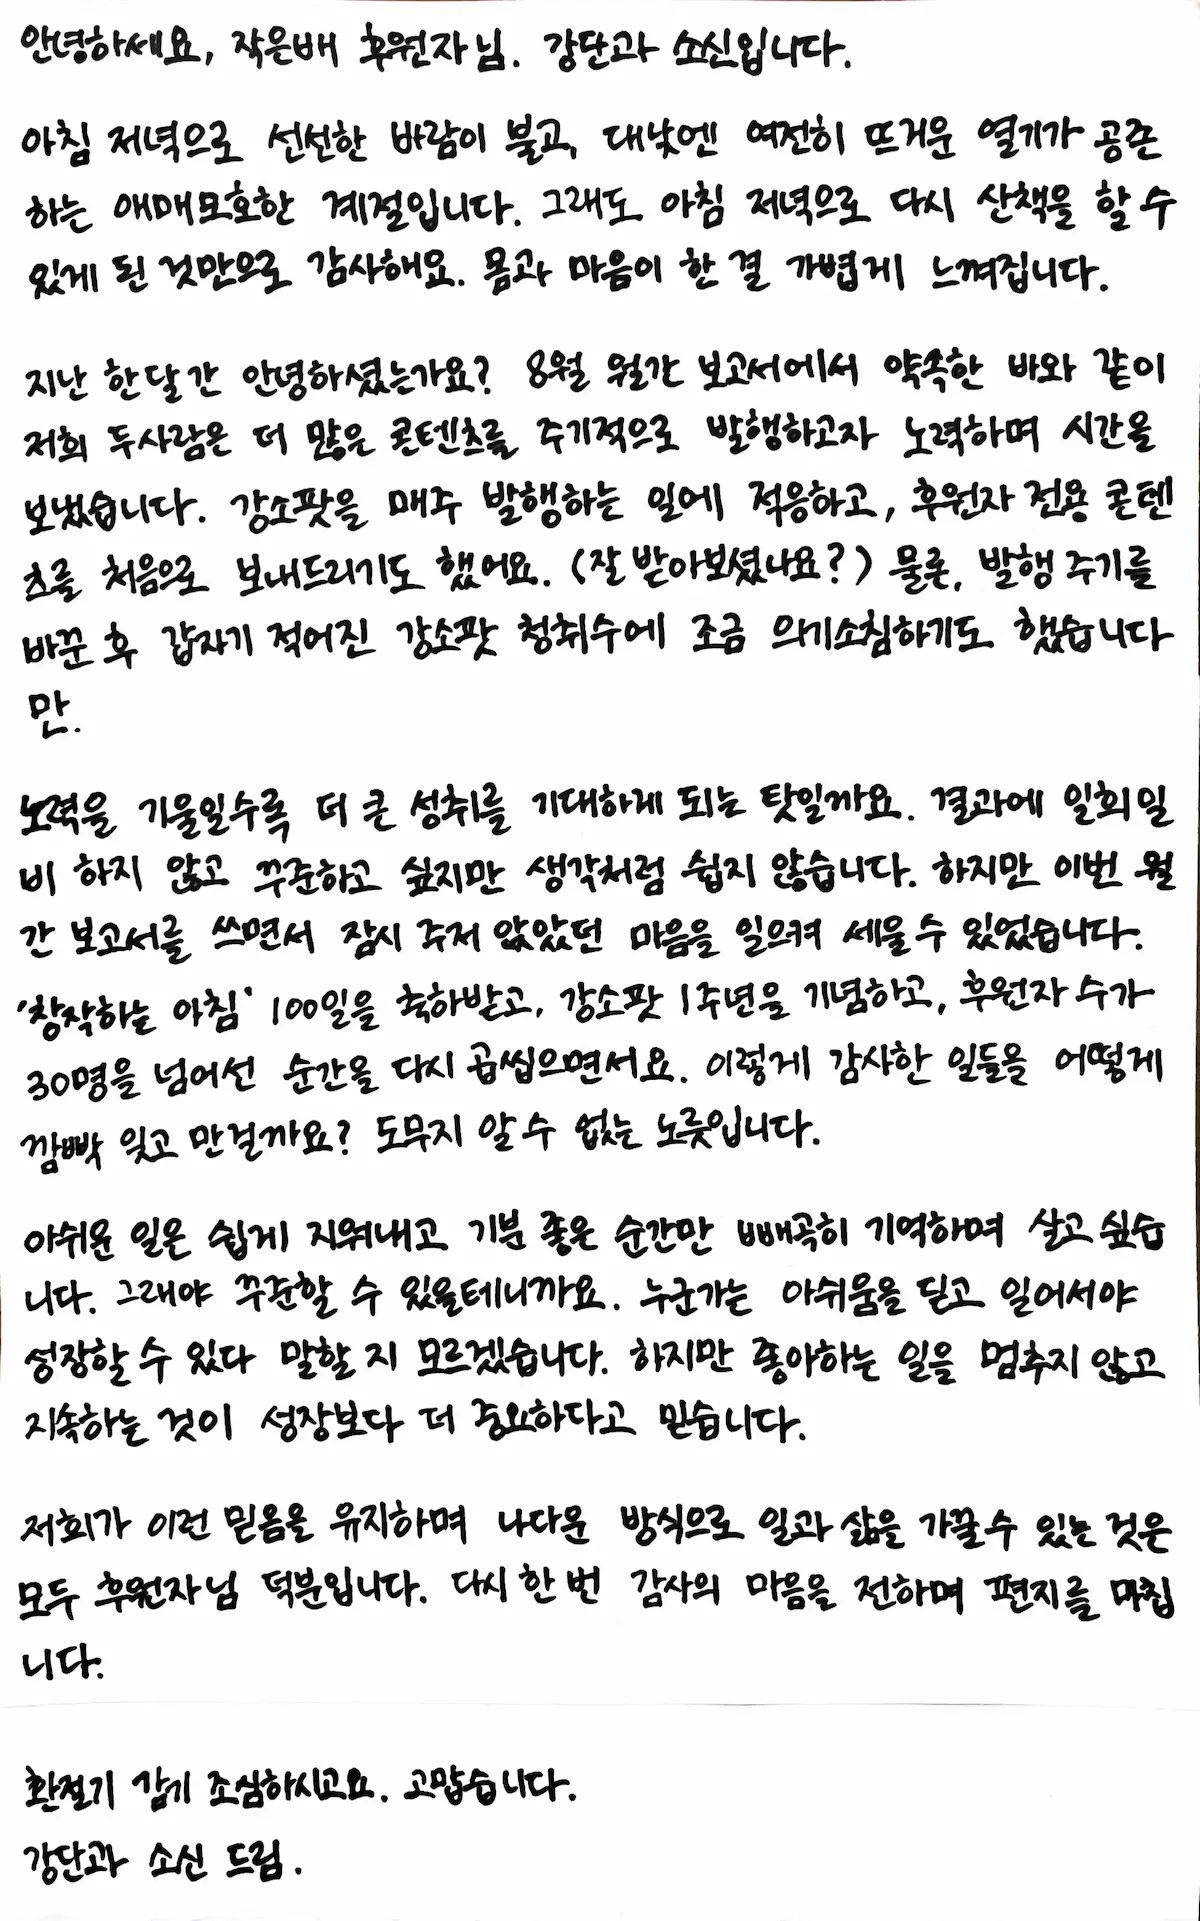 안녕하세요, 작은배 후원자님. 강단과 소신입니다.
아침 저녁으로 선선한 바람이 불고, 대낮엔 여전히 뜨거운 열기가 공존
하는 애매모호한 계절입니다. 그래도 아침 저녁으로 다시 산책을 할 수
있게 된 것만으로 감사해요. 몸과 마음이 한 결 가볍게 느껴집니다.
지난 한달간 안녕하셨는가요? 8월 월간 보고서에서 약속한 바와 같이
저희 두사람은 더 많은 콘텐츠를 주기적으로 발행하고자 노력하며 시간을
보냈습니다. 강소팟을 매주 발행하는 일에 적응하고, 후원자 전용 콘텐
츠를 처음으로 보내드리기도 했어요. (잘 받아보셨나요?) 물론, 발행 주기를
바꾼 후 갑자기 적어진 강소팟 청취수에 조금 의기소침하기도 했습니다
만.
노력을 기울일수록 더 큰 성취를 기대하게 되는 탓일까요. 결과에 일희일
비 하지 않고 꾸준하고 싶지만 생각처럼 쉽지 않습니다. 하지만 이번 월
간 보고서를 쓰면서 잠시 주저 앉았던 마음을 일으켜 세울 수 있었습니다.
'창작하는 아침' 100일을 축하받고, 강소팟 1주년을 기념하고, 후원자 수가
30명을 넘어선 순간을 다시 곱씹으면서요. 이렇게 감사한 일들을 어떻게
깜빡 잊고 만걸까요? 도무지 알 수 없는 노릇입니다.
아쉬운 일은 쉽게 지워내고 기분 좋은 순간만 빼곡히 기억하며 살고 싶습
니다. 그래야 꾸준할 수 있을테니까요. 누군가는 아쉬움을 딛고 일어서야
성장할 수 있다 말할 지 모르겠습니다. 하지만 좋아하는 일을 멈추지 않고
지속하는 것이 성장보다 더 중요하다고 믿습니다.
저희가 이런 믿음을 유지하며 나다운 방식으로 일과 삶을 가꿀 수 있는 것은
모두 후원자님 덕분입니다. 다시 한 번 감사의 마음을 전하며 편지를 마칩
니다.
환절기 감기 조심하시고요. 고맙습니다.
강단과 소신 드림.